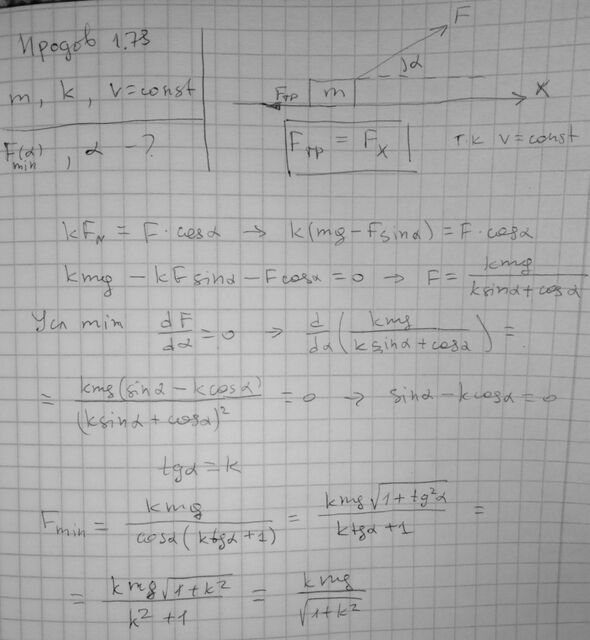 Иродов 1.73
m, k, v=const
F(α)min, α - ?
F
α
Fтр
m
X
Fтр = Fx
т.к v=const
kF_N = F·cosα → k(mg-Fsinα)=F·cosα
kmg - kFsinα - Fcosα=0 → F= kmg/(ksinα+cosα)
Усл min dF/dα=0 → d/dα(kmg/(ksinα+cosα))=
= kmg(sinα - kcosα)/(ksinα+cosα)² = 0 → sinα-kcosα=0
tgα=k
Fmin = kmg/(cosα(ktgα+1)) = kmg√(1+tg²α)/(ktgα+1) =
= kmg√(1+k²)/(k²+1) = kmg/√(1+k²)